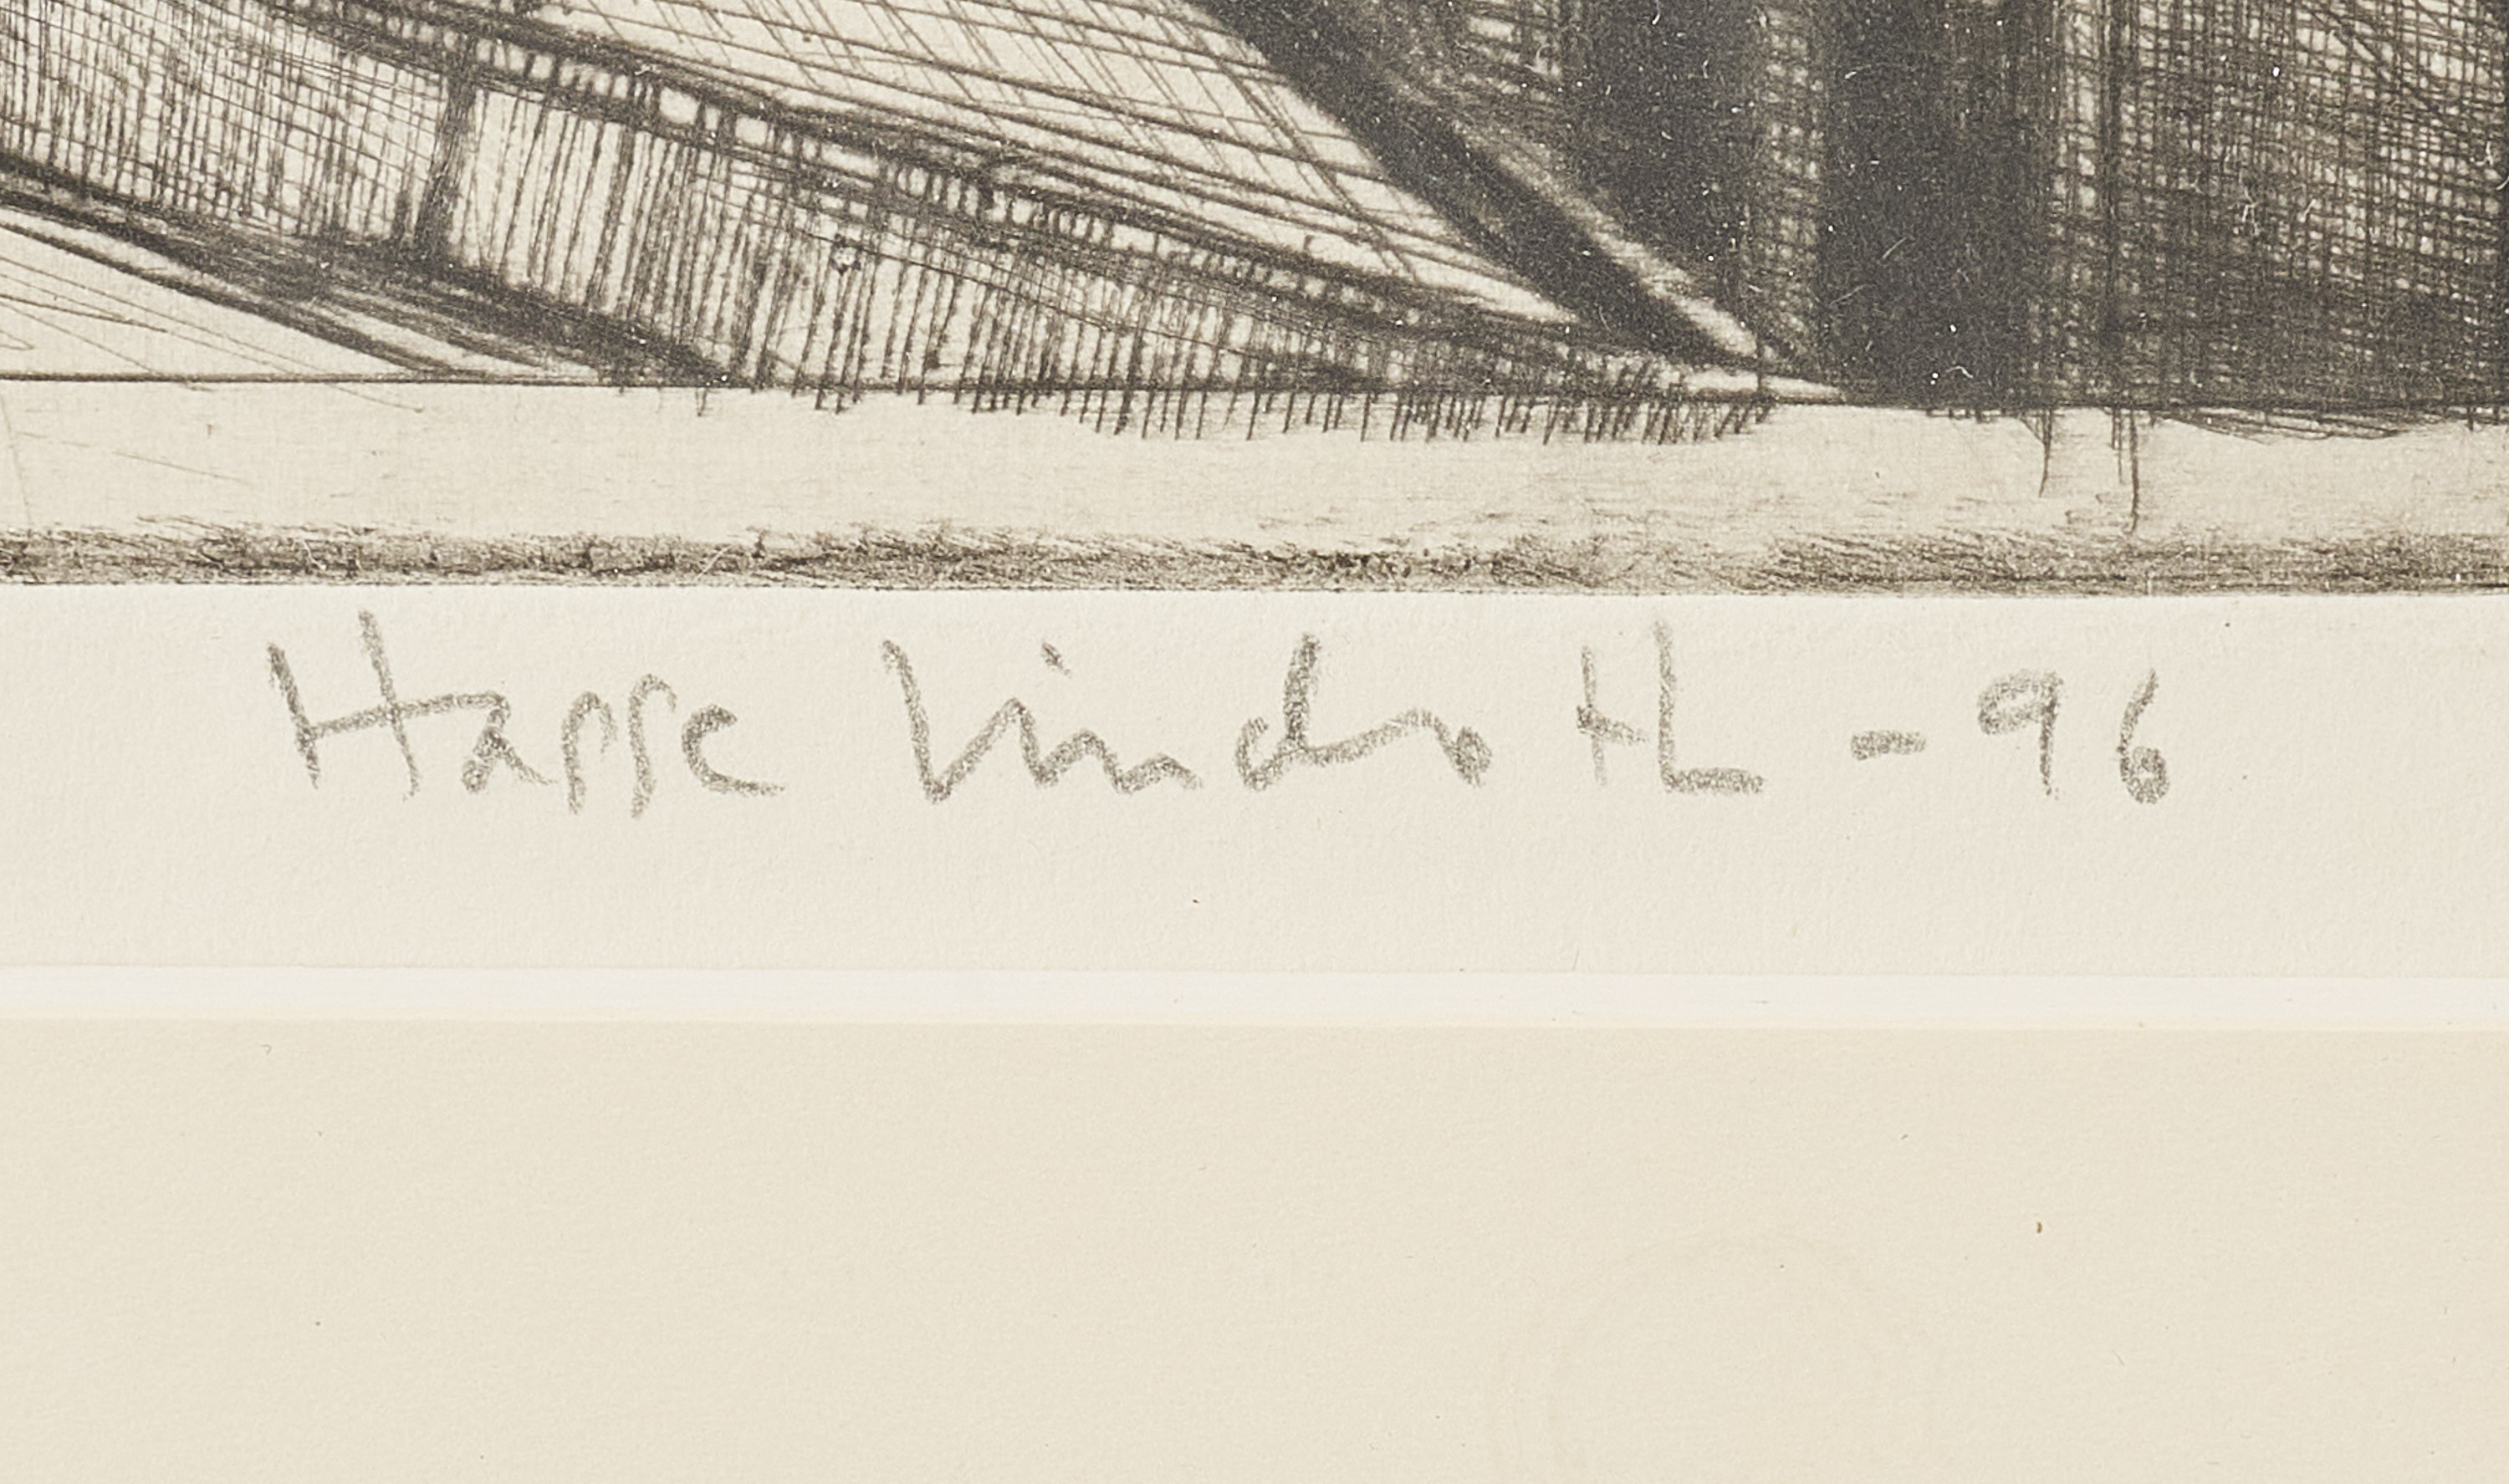 Hasse Lindroth -96